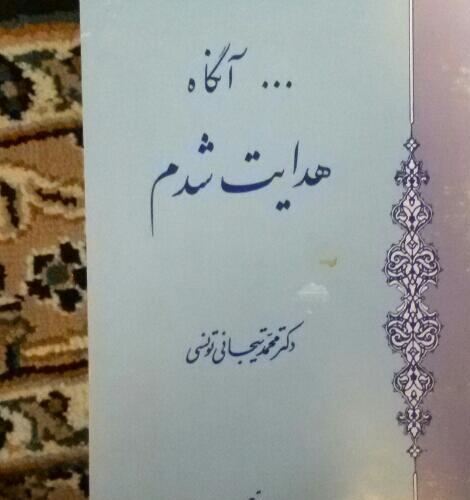 ... آنگاه
هدایت شدم
دکتر محمد تیجانی تونسی